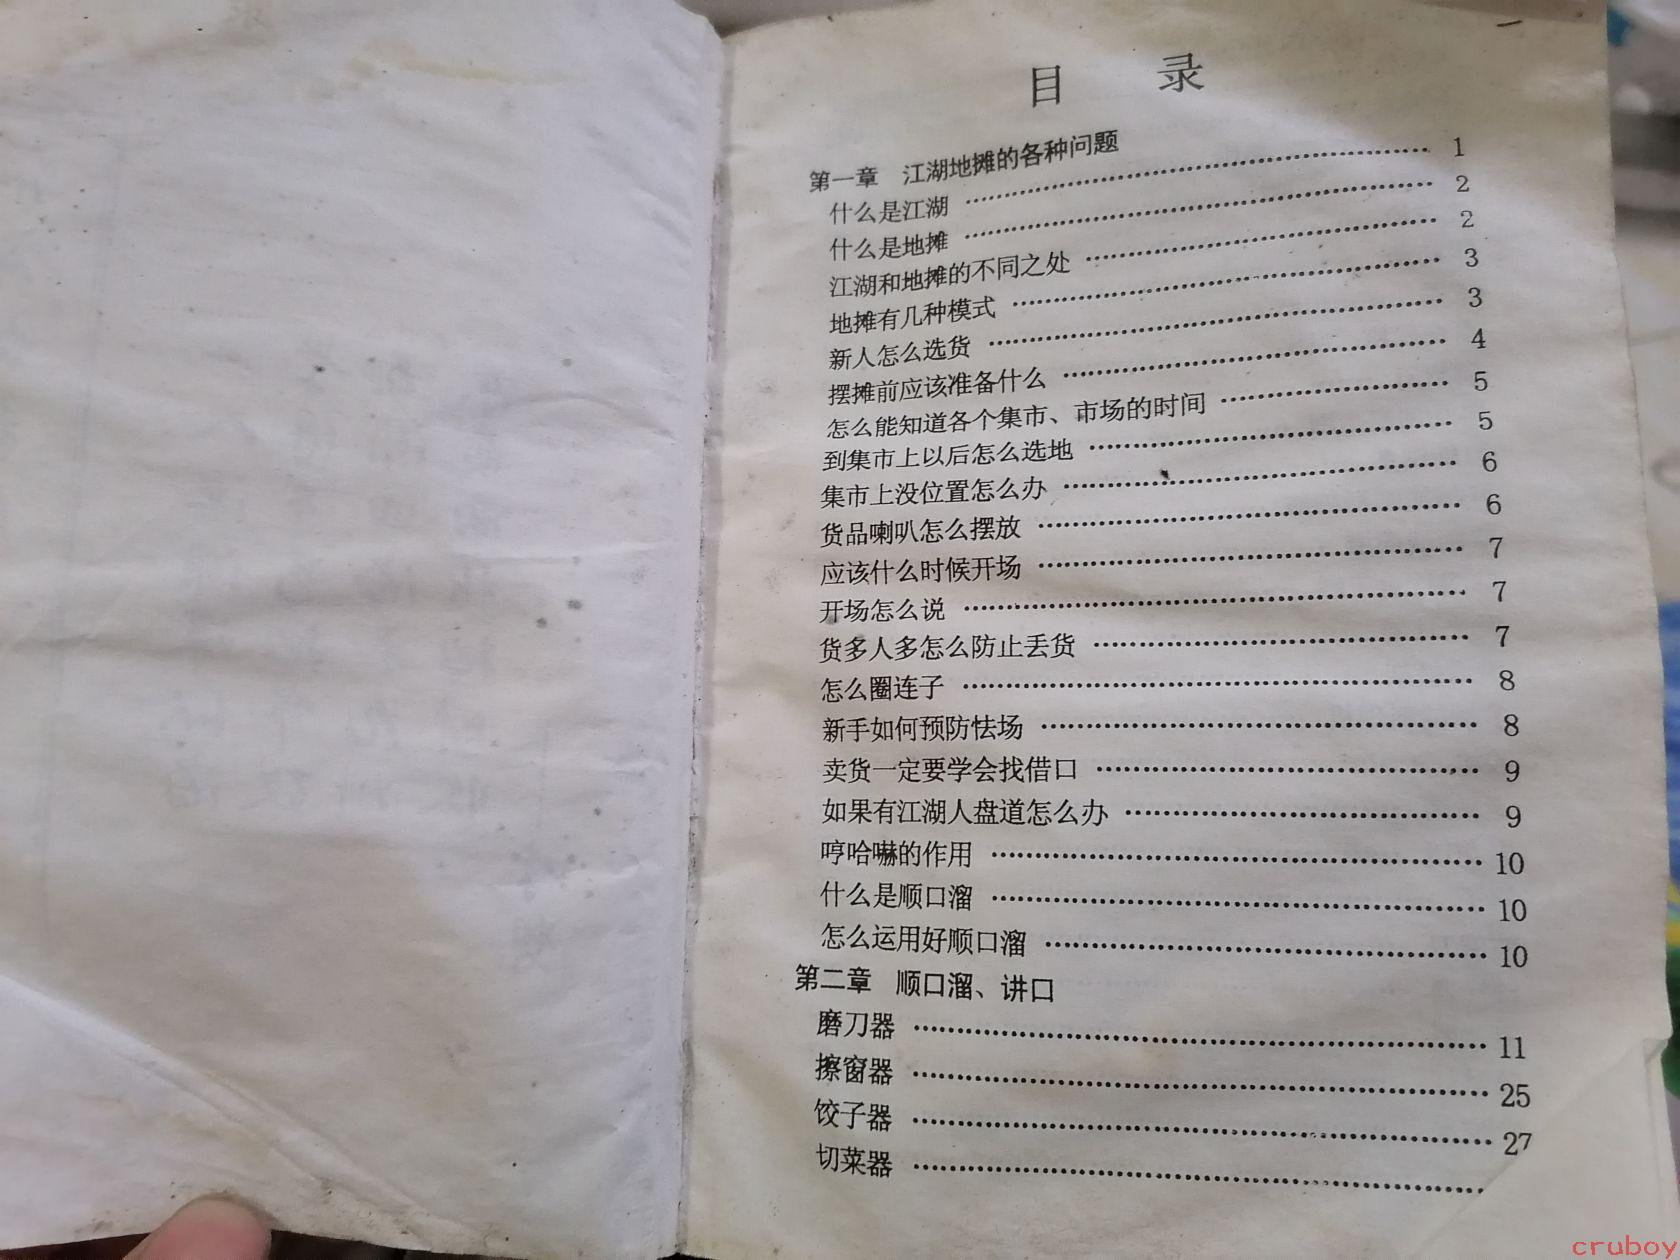 目 录
第一章 江湖地摊的各种问题
什么是江湖 …… 1
什么是地摊 …… 2
江湖和地摊的不同之处 …… 2
地摊有几种模式 …… 3
新人怎么选货 …… 3
摆摊前应该准备什么 …… 4
怎么能知道各个集市、市场的时间 …… 5
到集市上以后怎么选地 …… 5
集市上没位置怎么办 …… 6
货品喇叭怎么摆放 …… 6
应该什么时候开场 …… 7
开场怎么说 …… 7
货多人多怎么防止丢货 …… 7
怎么圈连子 …… 8
新手如何预防怯场 …… 8
卖货一定要学会找借口 …… 9
如果有江湖人盘道怎么办 …… 9
哼哈嚇的作用 …… 10
什么是顺口溜 …… 10
怎么运用好顺口溜 …… 10
第二章 顺口溜、讲口
磨刀器 …… 11
擦窗器 …… 25
饺子器 …… 27
切菜器 ……
cruboy